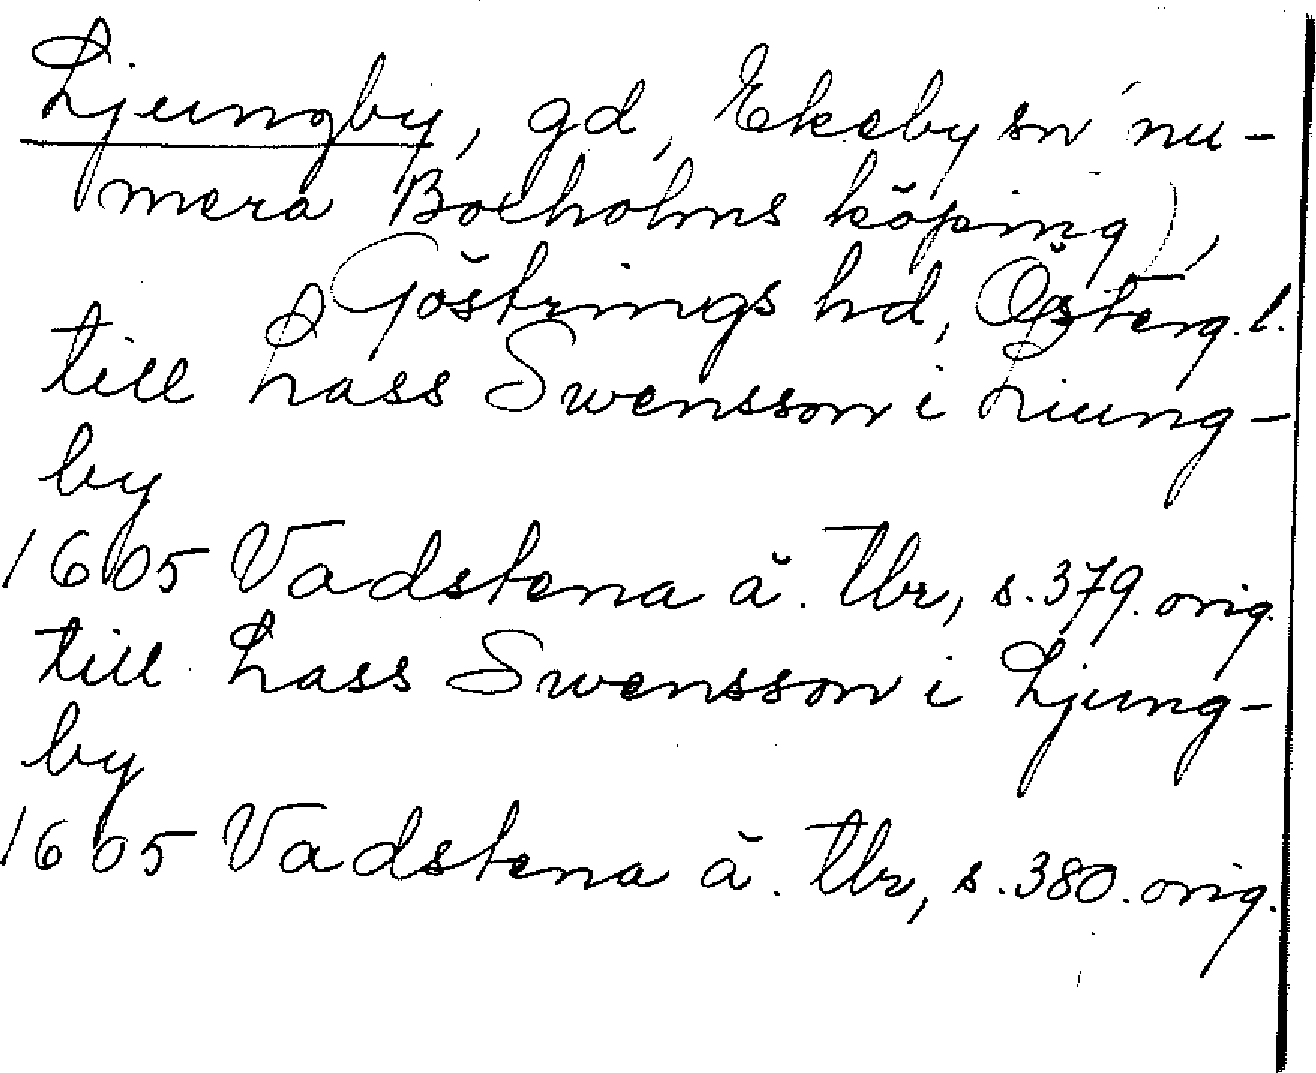 Ljungby, gd, Ekeby sn (nu-
mera Boxholms köping),
Göstrings hd, Österg.l.
till Lass Swensson i Liung-
by
1605 Vadstena ä. Tbr, s.379. orig.
till Lass Swensson i Ljung-
by
1605 Vadstena ä. Tbr, s.380. orig.